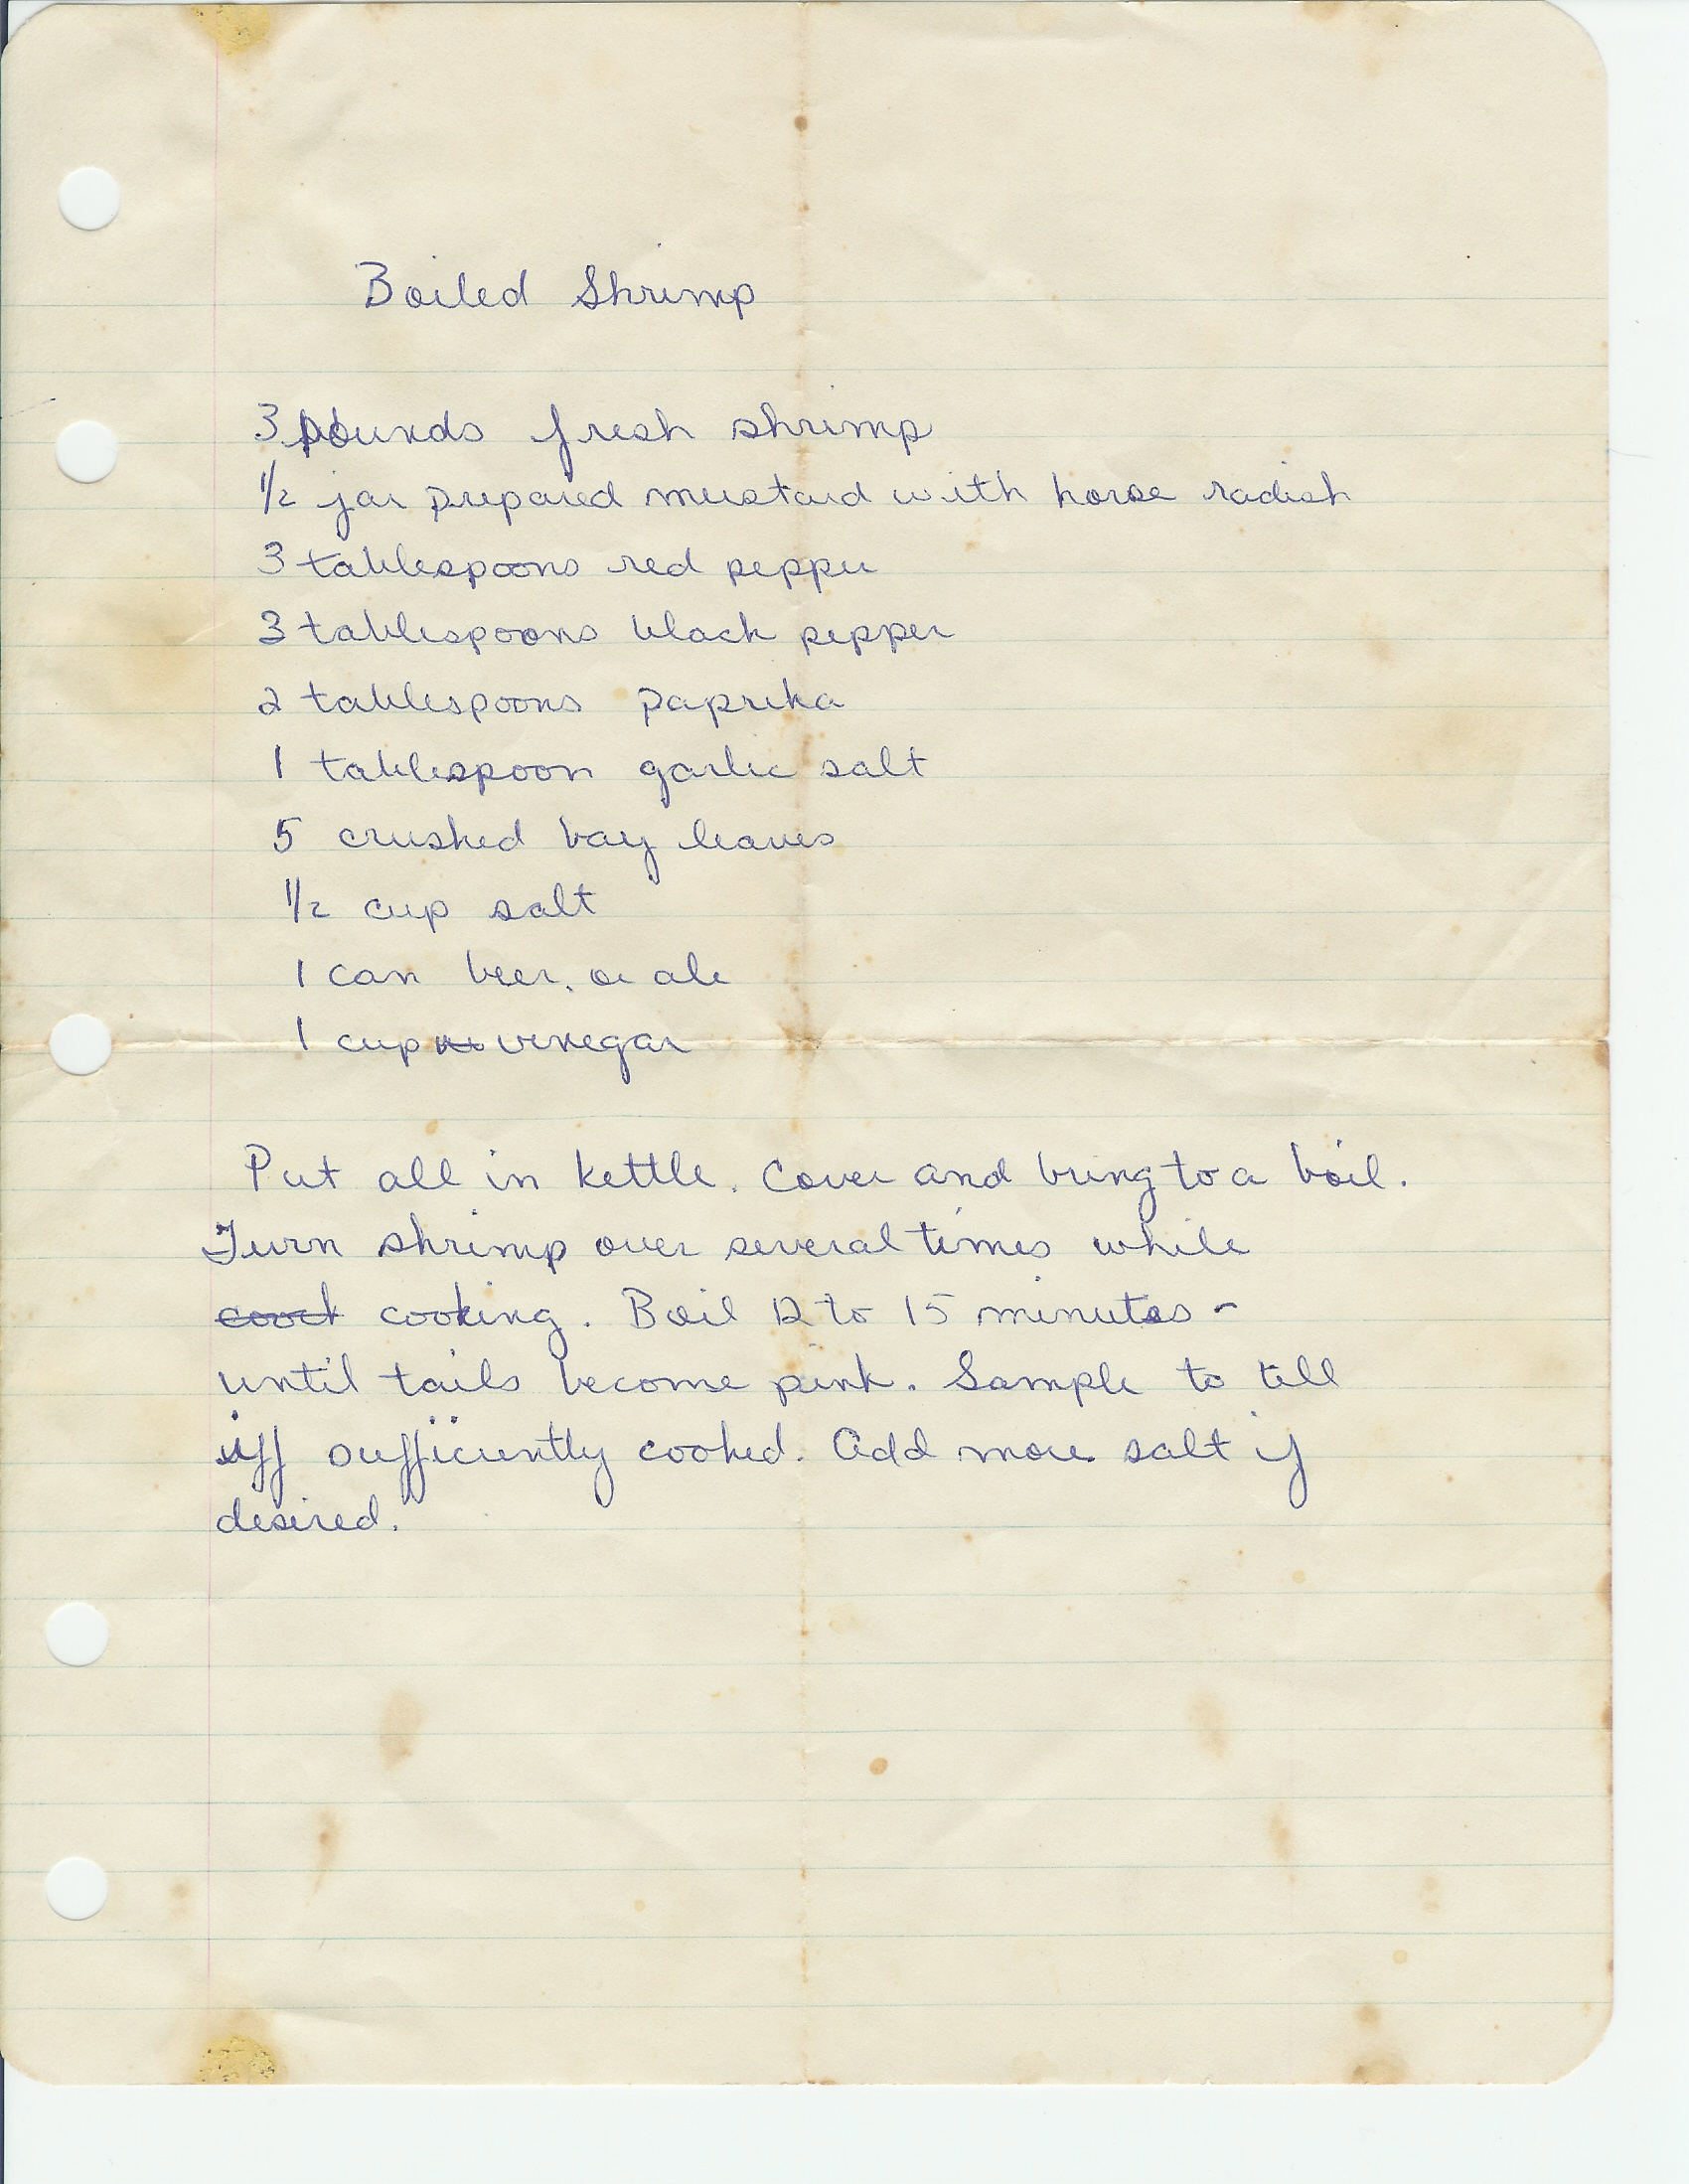 Boiled Shrimp
3 pounds fresh shrimp
1/2 jar prepared mustard with horse radish
3 tablespoons red pepper
3 tablespoons black pepper
2 tablespoons paprika
1 tablespoon garlic salt
5 crushed bay leaves
1/2 cup salt
1 can beer, or ale
1 cup vinegar
Put all in kettle. Cover and bring to a boil.
Turn shrimp over several times while
cooking. Boil 12 to 15 minutes -
until tails become pink. Sample to tell
iff sufficiently cooked. Add more salt if
desired.